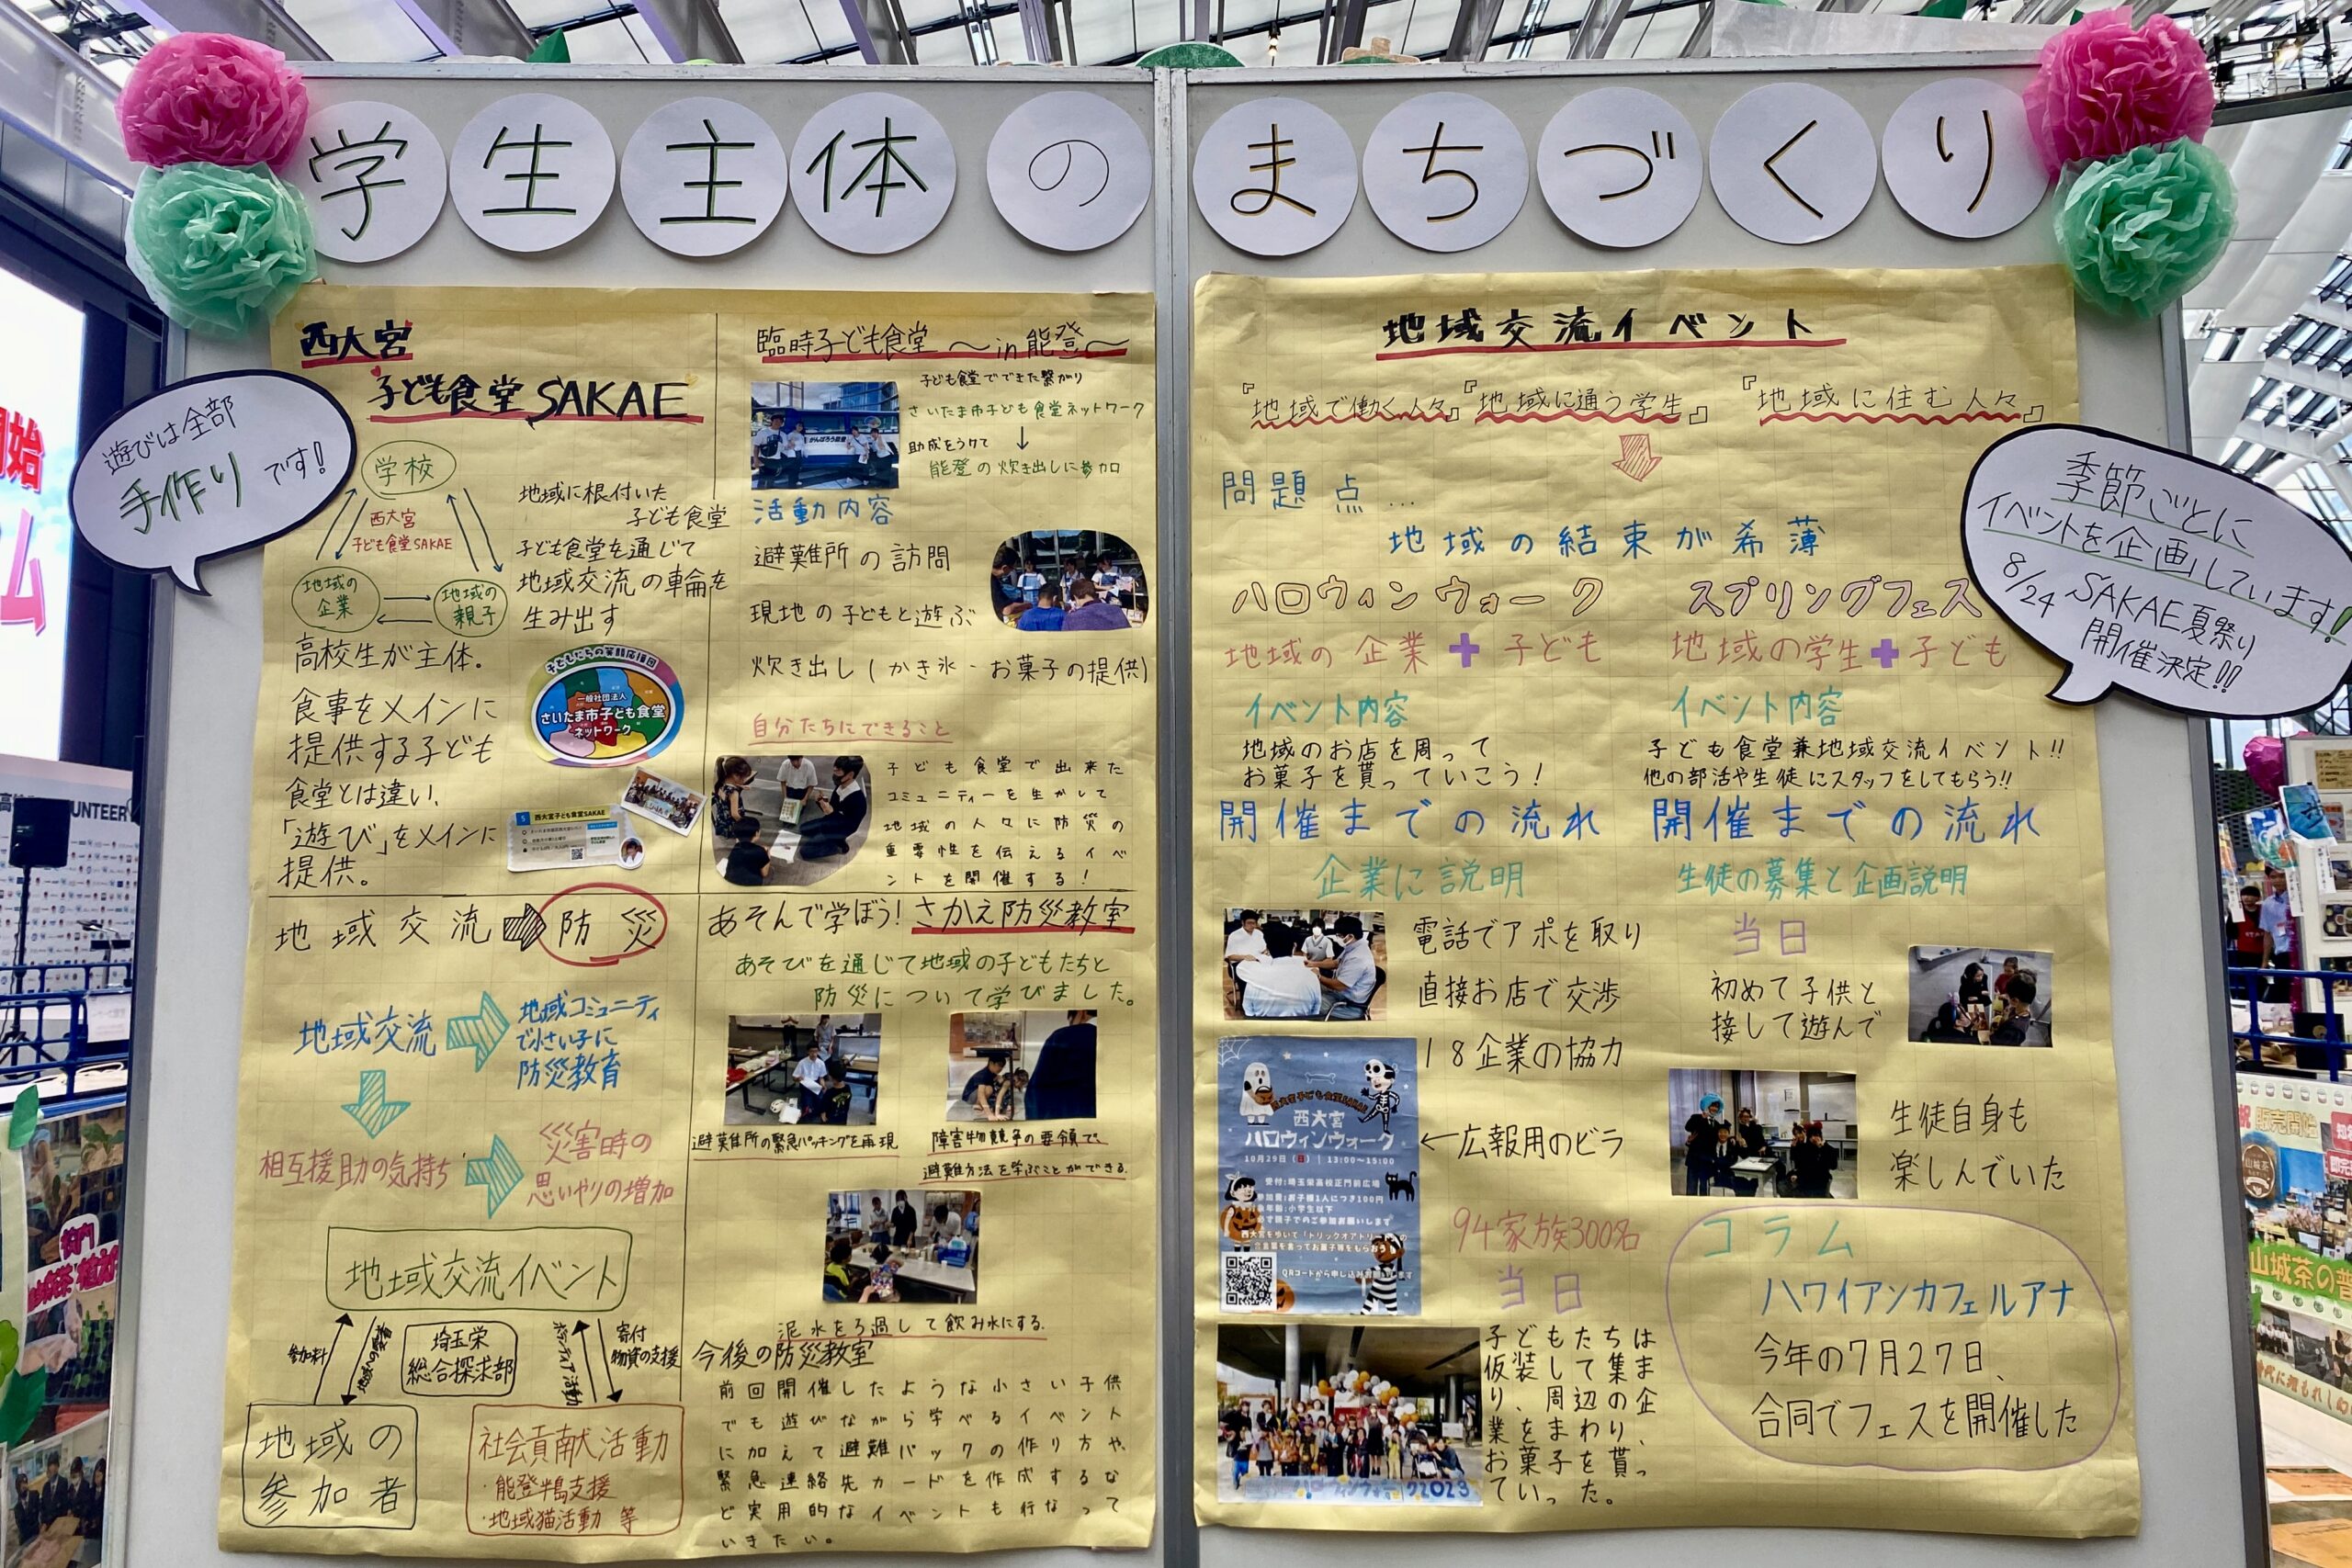 学生主体のまちづくり
遊びは全部
手作りです!
西大宮
子ども食堂SAKAE
学校
西大宮
子ども食堂SAKAE
地域の
企業
地域の
親子
地域に根付いた
子ども食堂
子ども食堂を通じて
地域交流の輪を
生み出す
高校生が主体.
食事をメインに
提供する子ども
食堂とは違い、
「遊び」をメインに
提供。
子どもたちの笑顔応援団
一般社団法人
さいたま市子ども食堂
ネットワーク
西大宮子ども食堂SAKAE
臨時子ども食堂 〜in能登〜
子ども食堂でできた繋がり
さいたま市子ども食堂ネットワーク
助成をうけて ↓
能登の炊き出しに参加
がんばろう能登
活動内容
避難所の訪問
現地の子どもと遊ぶ
炊き出し(かき氷・お菓子の提供)
自分たちにできること
子ども食堂で出来た
コミュニティーを生かして
地域の人々に防災の
重要性を伝えるイベ
ントを開催する!
地域交流⇨防災
地域交流
地域コミュニティ
で小さい子に
防災教育
相互援助の気持ち
災害時の
思いやりの増加
地域交流イベント
参加料
埼玉栄
総合探求部
ボランティア活動
寄付
物資の支援
地域の
参加者
社会貢献活動
・能登半島支援
・地域猫活動 等
あそんで学ぼう!さかえ防災教室
あそびを通じて地域の子どもたちと
防災について学びました。
避難所の緊急パッキングを再現
障害物競争の要領で、
避難方法を学ぶことができる.
泥水をろ過して飲み水にする.
今後の防災教室
前回開催したような小さい子供
でも遊びながら学べるイベント
に加えて避難パックの作り方や、
緊急連絡先カードを作成するな
ど実用的なイベントも行なって
いきたい。
地域交流イベント
『地域で働く人々』『地域に通う学生』『地域に住む人々』
問題点…
地域の結束が希薄
季節ごとに
イベントを企画しています!
8/24 SAKAE夏祭り
開催決定!!
ハロウィンウォーク
地域の企業+子ども
イベント内容
地域のお店を周って
お菓子を貰っていこう!
開催までの流れ
企業に説明
電話でアポを取り
直接お店で交渉
18企業の協力
←広報用のビラ
西大宮子ども食堂SAKAE
西大宮
ハロウィンウォーク
10月29日(日) | 13:00〜15:00
受付:埼玉栄高校正門前広場
参加費:お子様1人につき100円
小学生以下
QRコードから
94家族300名
当日
子どもたちは
仮装して集ま
り、周辺の企
業をまわり、
お菓子を貰っ
ていった。
2023
スプリングフェス
地域の学生+子ども
イベント内容
子ども食堂兼地域交流イベント!!
他の部活や生徒にスタッフをしてもらう!!
開催までの流れ
生徒の募集と企画説明
当日
初めて子供と
接して遊んで
生徒自身も
楽しんでいた
コラム
ハワイアンカフェルアナ
今年の7月27日、
合同でフェスを開催した
開始
UNTEER
販売開始
山城茶の普